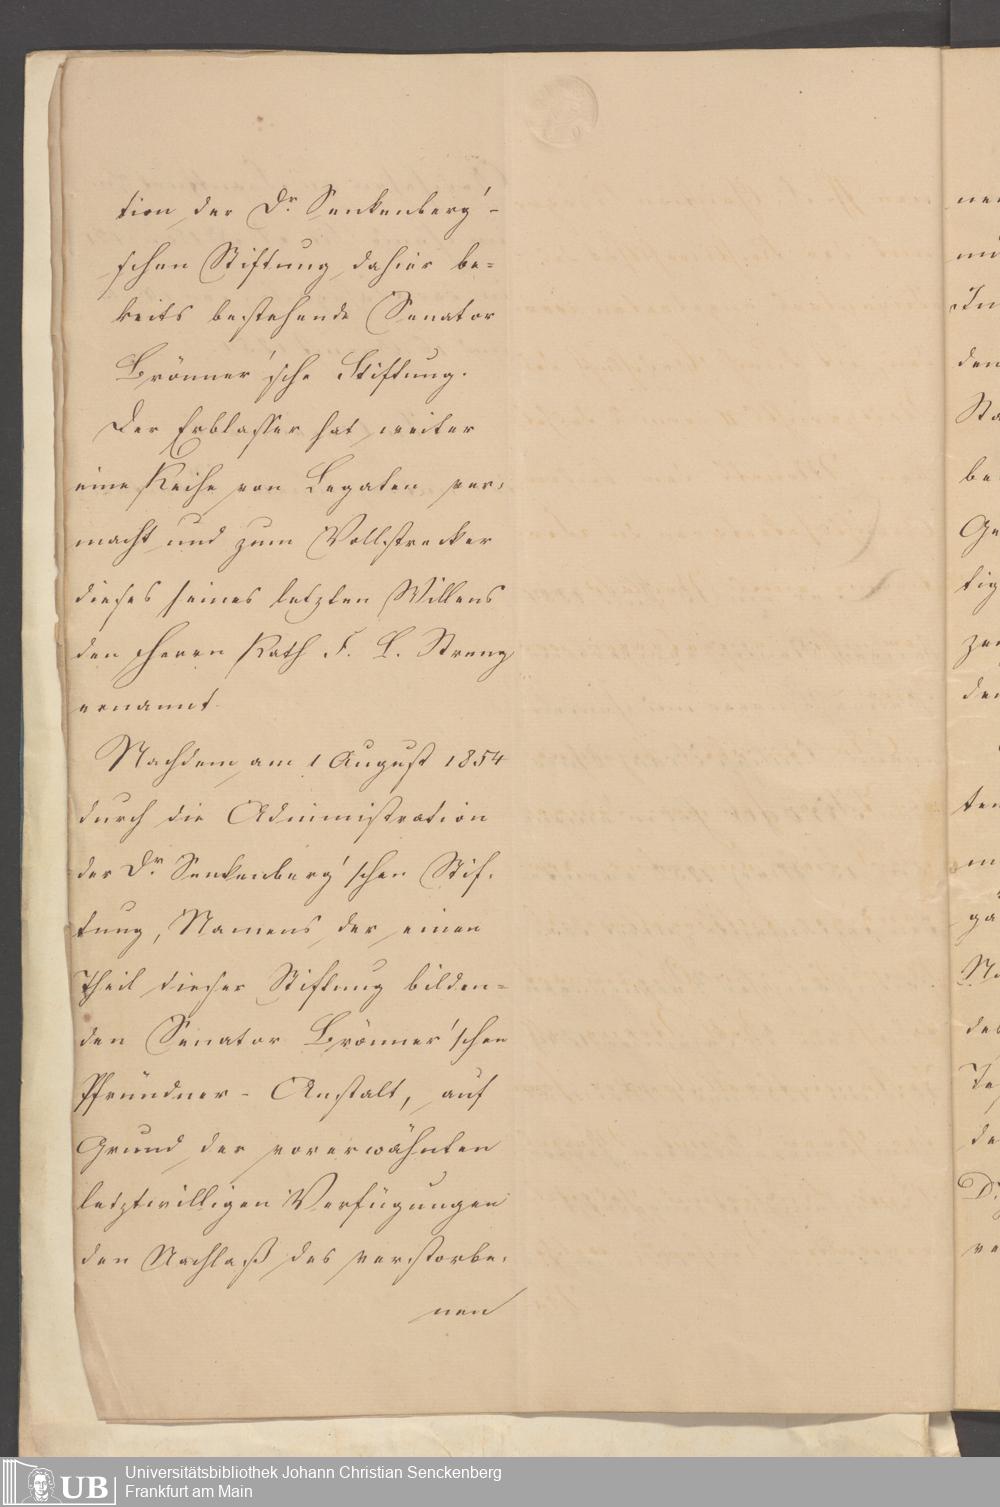 tion der Dr. Senkenberg'-
schen Stiftung dahier be=
reits bestehende Senator
Brönner'sche Stiftung.
Der Erblasser hat weiter
eine Reihe von Legaten ver-
macht und zum Vollstrecker
dieses seines letzten Willens
den Herrn Rath F. L. Streng
ernannt.
Nachdem am 1 August 1854
durch die Administration
der Dr. Senkenberg'schen Stif-
tung, Namens der einen
Theil dieser Stiftung bilden=
den Senator Brönner'schen
Pfründner-Anstalt, auf
Grund der vorerwähnten
letztwilligen Verfügungen
den Nachlaß des verstorbe-
nen
UB
Universitätsbibliothek Johann Christian Senckenberg
Frankfurt am Main